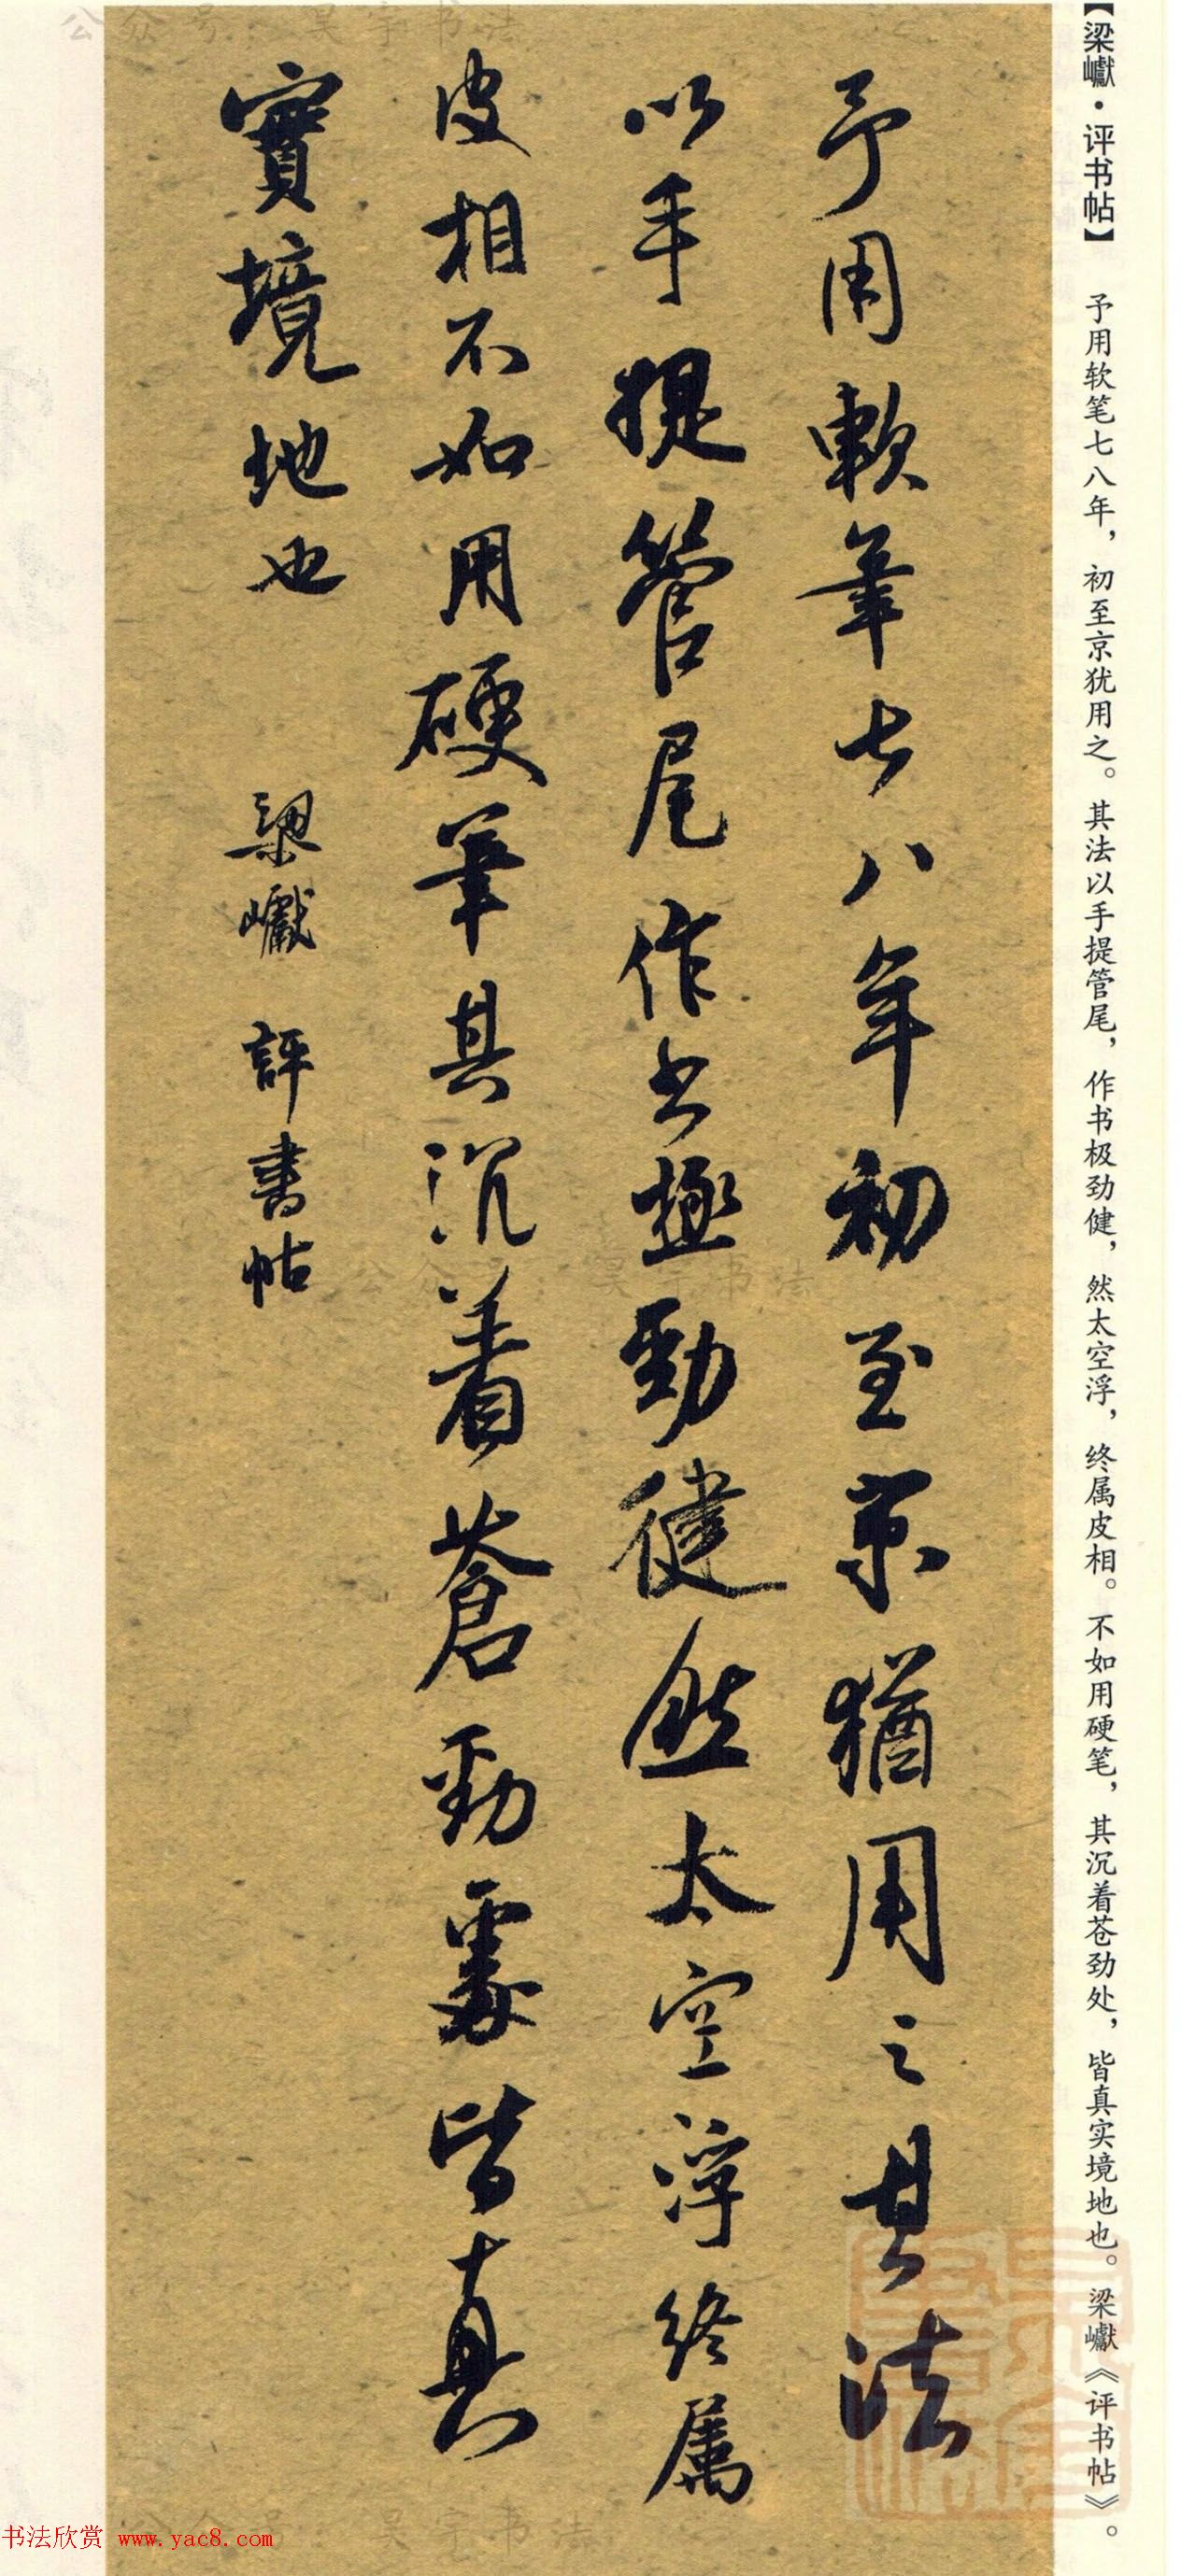 【梁巘·评书帖】 予用软笔七八年，初至京犹用之。其法以手提管尾，作书极劲健，然太空浮，终属皮相。不如用硬笔，其沉着苍劲处，皆真实境地也。梁巘《评书帖》。
予用軟筆七八年初至京猶用之其法
以手提管尾作书極勁健然太空浮終属
皮相不如用硬筆其沉着蒼勁處皆真
實境地也 梁巘 評書帖
书法欣赏 www.yac8.com